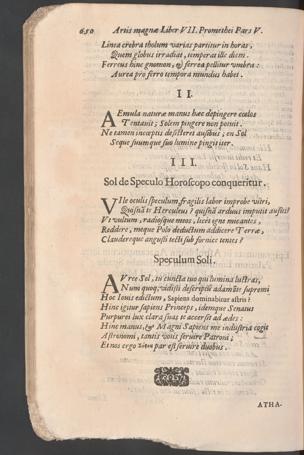 650 Artis magnæ Liber VII. Promethei Pars V.
Linea crebra tholum varias partitur in horas,
Quem globus irradiat, temperat ille diem.
Ferreus hinc gnomon, & ferrea pellitur umbra:
Aurea pro ferro tempora mundus habet.
II.
AEmula naturæ manus hæc depingere cœlos
Tentavit; Solem pingere non potuit.
Ne tamen inceptis desisteret ausibus; en Sol
Seque suumque suo lumine pingit iter.
III.
Sol de Speculo Horoscopo conqueritur.
VIle oculis speculum, fragilis labor improbe vitri,
Quisnã te Herculeus? quisnã ardius impulit ausus?
Ut vultum, radiosque meos, licet igne micantes,
Reddere, meque Polo deductum addicere Terræ,
Claudereque angusti tecti sub fornice tentes?
Speculum Soli.
AUree Sol, tu cuncta tuo qui lumine lustras,
Num quoq, vidisti descriptũ adamãte supremi
Hoc Iouis edictum, Sapiens dominabitur astris?
Hinc igitur sapiens Princeps, idemque Senatus
Purpurei lux clara suas te accersit ad ædes:
Hinc manus, & Magni Sapiens me industria cogit
Astronomi, tantis votis servire Patroni;
Et nos ergo par est servire duobus.
ATHA-